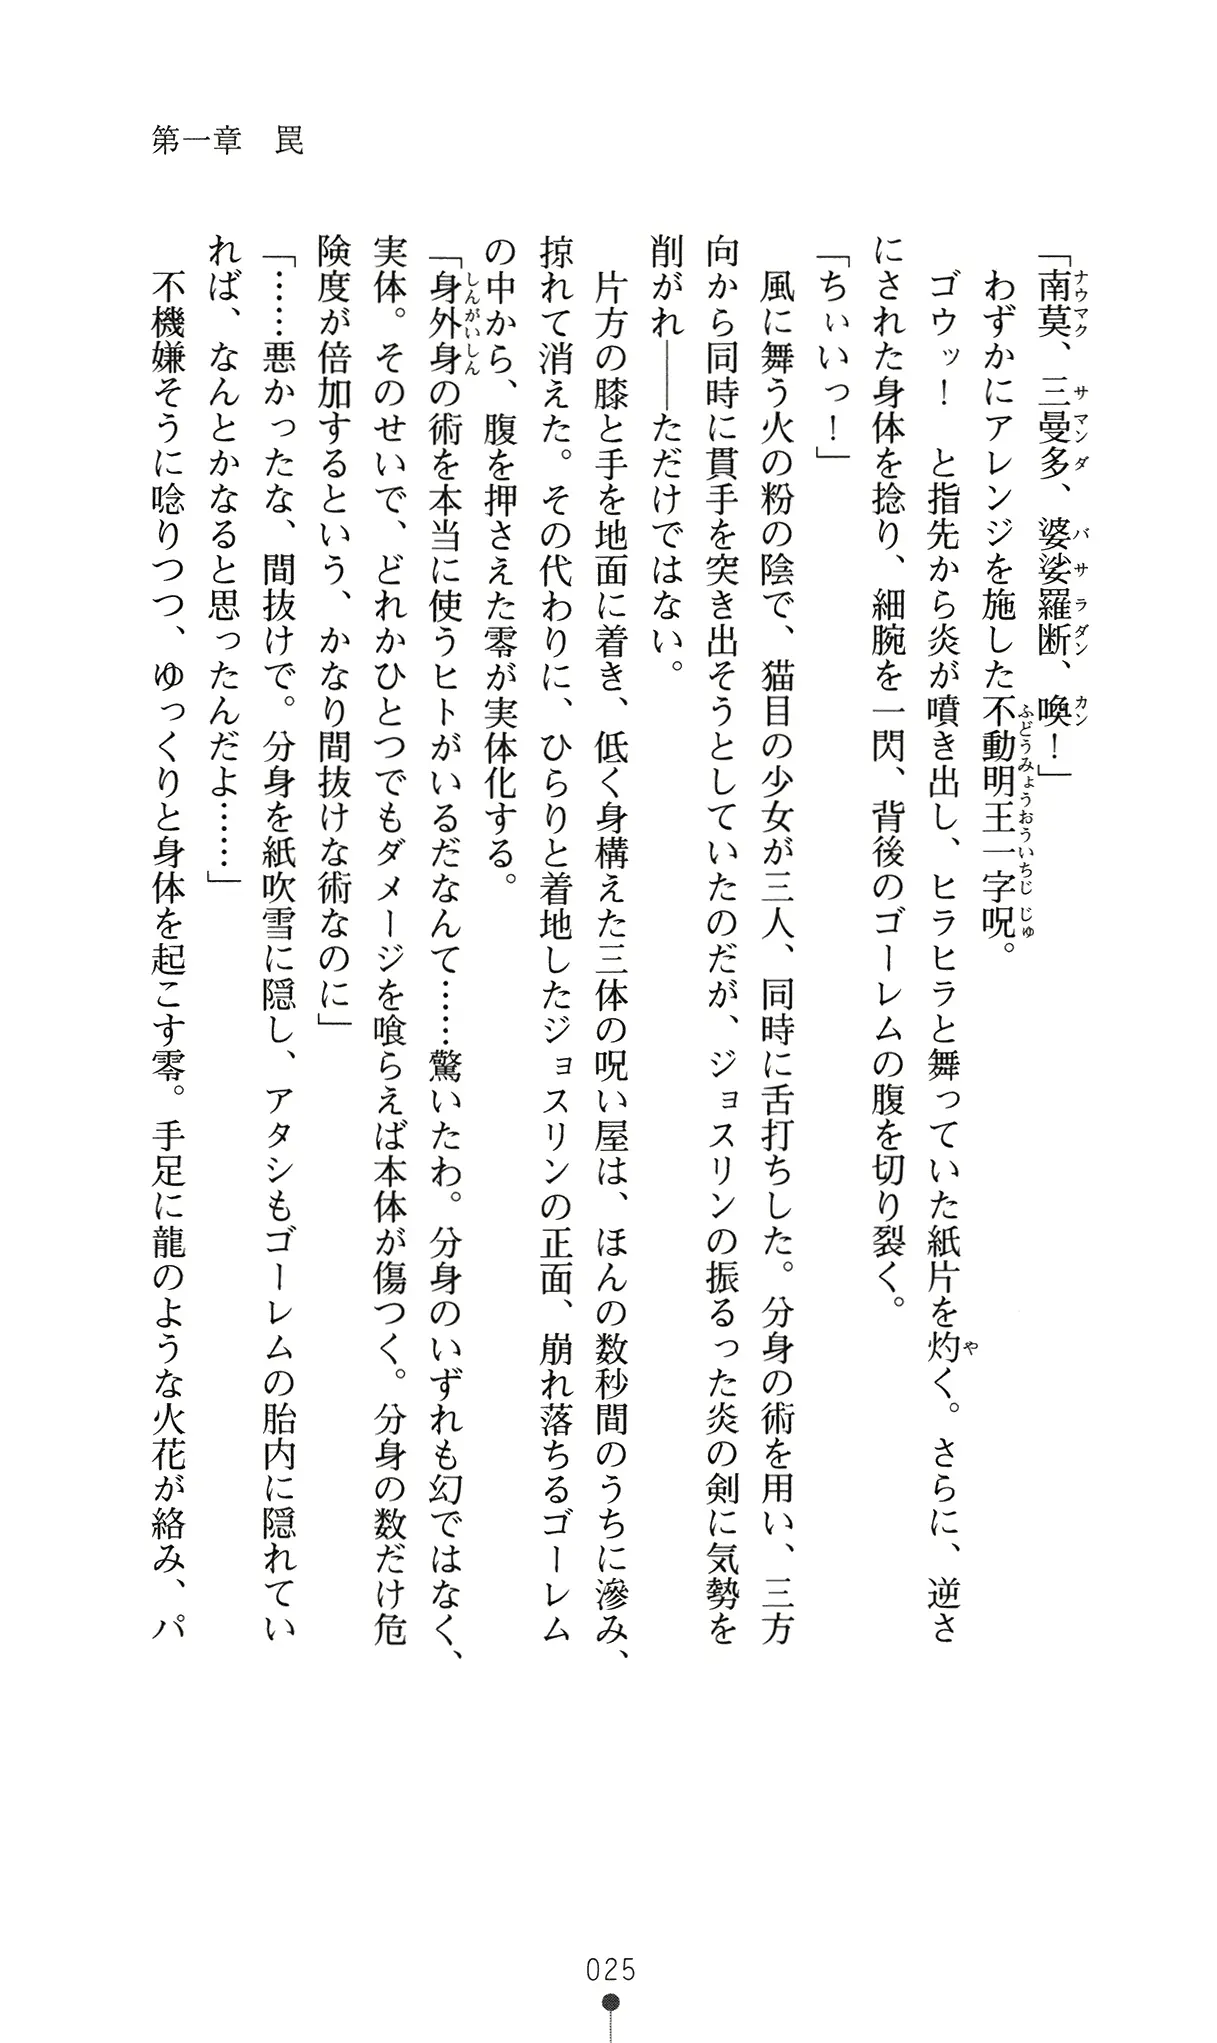 第一章　罠
「南莫、三曼多、婆娑羅断、喚！」
　わずかにアレンジを施した不動明王一字呪。
　ゴウッ！　と指先から炎が噴き出し、ヒラヒラと舞っていた紙片を灼く。さらに、逆さ
にされた身体を捻り、細腕を一閃、背後のゴーレムの腹を切り裂く。
「ちぃいっ！」
　風に舞う火の粉の陰で、猫目の少女が三人、同時に舌打ちした。分身の術を用い、三方
向から同時に貫手を突き出そうとしていたのだが、ジョスリンの振るった炎の剣に気勢を
削がれ――ただけではない。
　片方の膝と手を地面に着き、低く身構えた三体の呪い屋は、ほんの数秒間のうちに滲み、
掠れて消えた。その代わりに、ひらりと着地したジョスリンの正面、崩れ落ちるゴーレム
の中から、腹を押さえた零が実体化する。
「身外身の術を本当に使うヒトがいるだなんて……驚いたわ。分身のいずれも幻ではなく、
実体。そのせいで、どれかひとつでもダメージを喰らえば本体が傷つく。分身の数だけ危
険度が倍加するという、かなり間抜けな術なのに」
「……悪かったな、間抜けで。分身を紙吹雪に隠し、アタシもゴーレムの胎内に隠れてい
れば、なんとかなると思ったんだよ……」
　不機嫌そうに唸りつつ、ゆっくりと身体を起こす零。手足に龍のような火花が絡み、パ
025